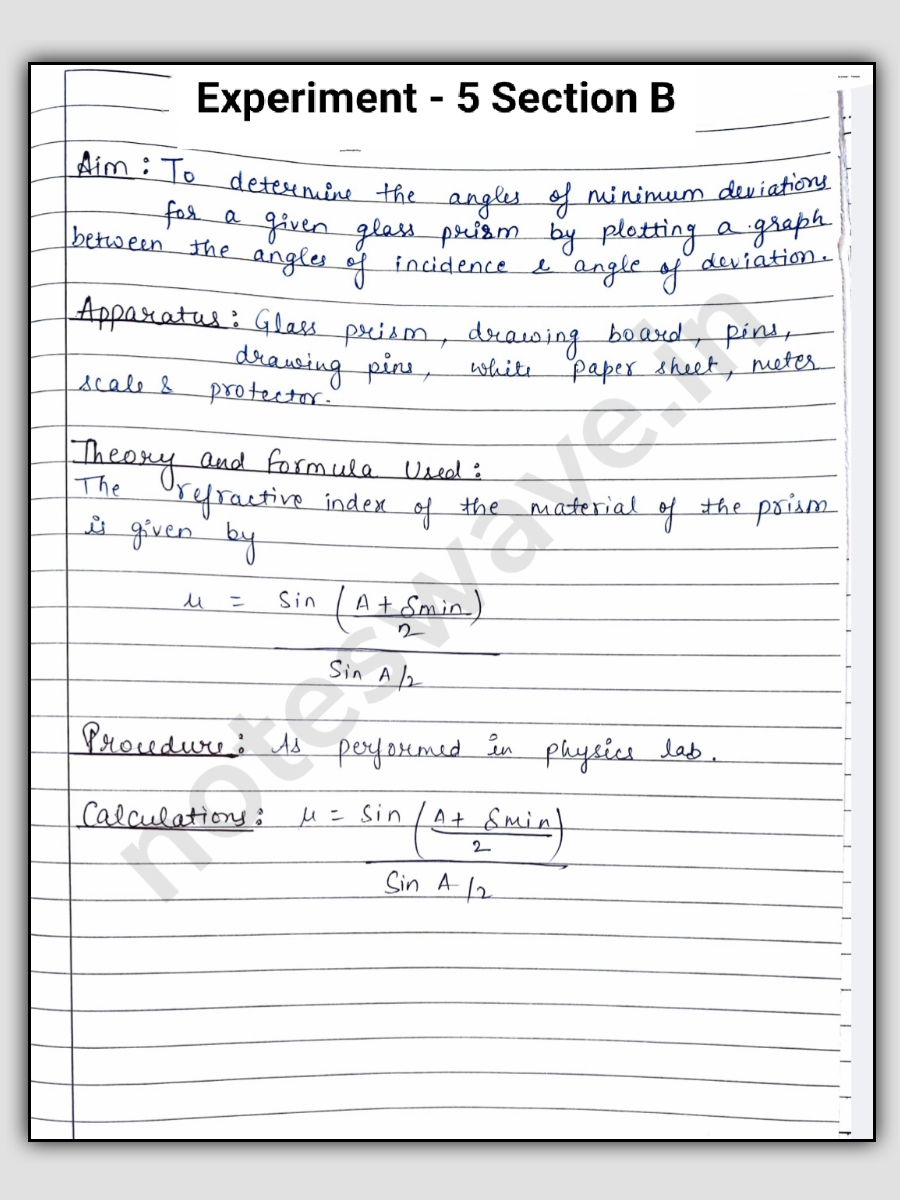 Experiment - 5 Section B
Aim : To determine the angles of minimum deviations
for a given glass prism by plotting a graph
between the angles of incidence & angle of deviation.
Apparatus : Glass prism, drawing board, pins,
drawing pins, white paper sheet, meter
scale & protector.
Theory and Formula Used :
The refractive index of the material of the prism
is given by
μ = Sin (A + δmin)
2
Sin A/2
Procedure : As performed in physics lab.
Calculations : μ = Sin (A + δmin)
2
Sin A/2
noteswave.in